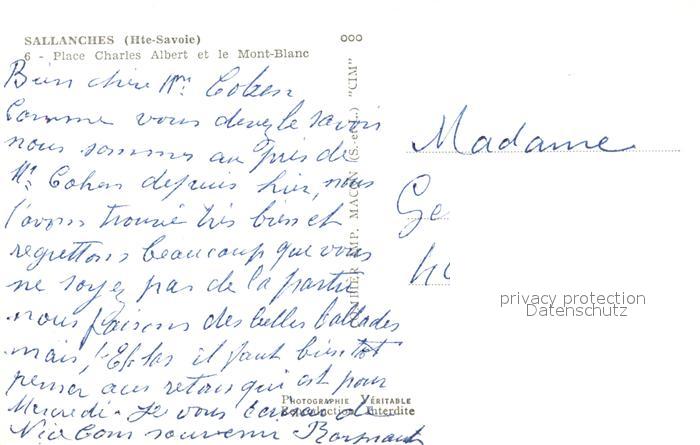 SALLANCHES (Hte-Savoie)
6 - Place Charles Albert et le Mont-Blanc
Bien chère Mme Cohen
Comme vous devez le savoir
nous sommes au près de
Mr Cohen depuis hier, nous
l'avons trouvé très bien et
regrettons beaucoup que vous
ne soyez pas de la partie
nous faisons des belles ballades
mais, Hélas il faut bientôt
penser au retour qui est pour
Mercredi - Je vous
Nice bons souvenirs
COMBIER IMP. MACON (S.-et-L.) "CIM"
PHOTOGRAPHIE VÉRITABLE
Reproduction Interdite
Madame
Ge
privacy protection
Datenschutz